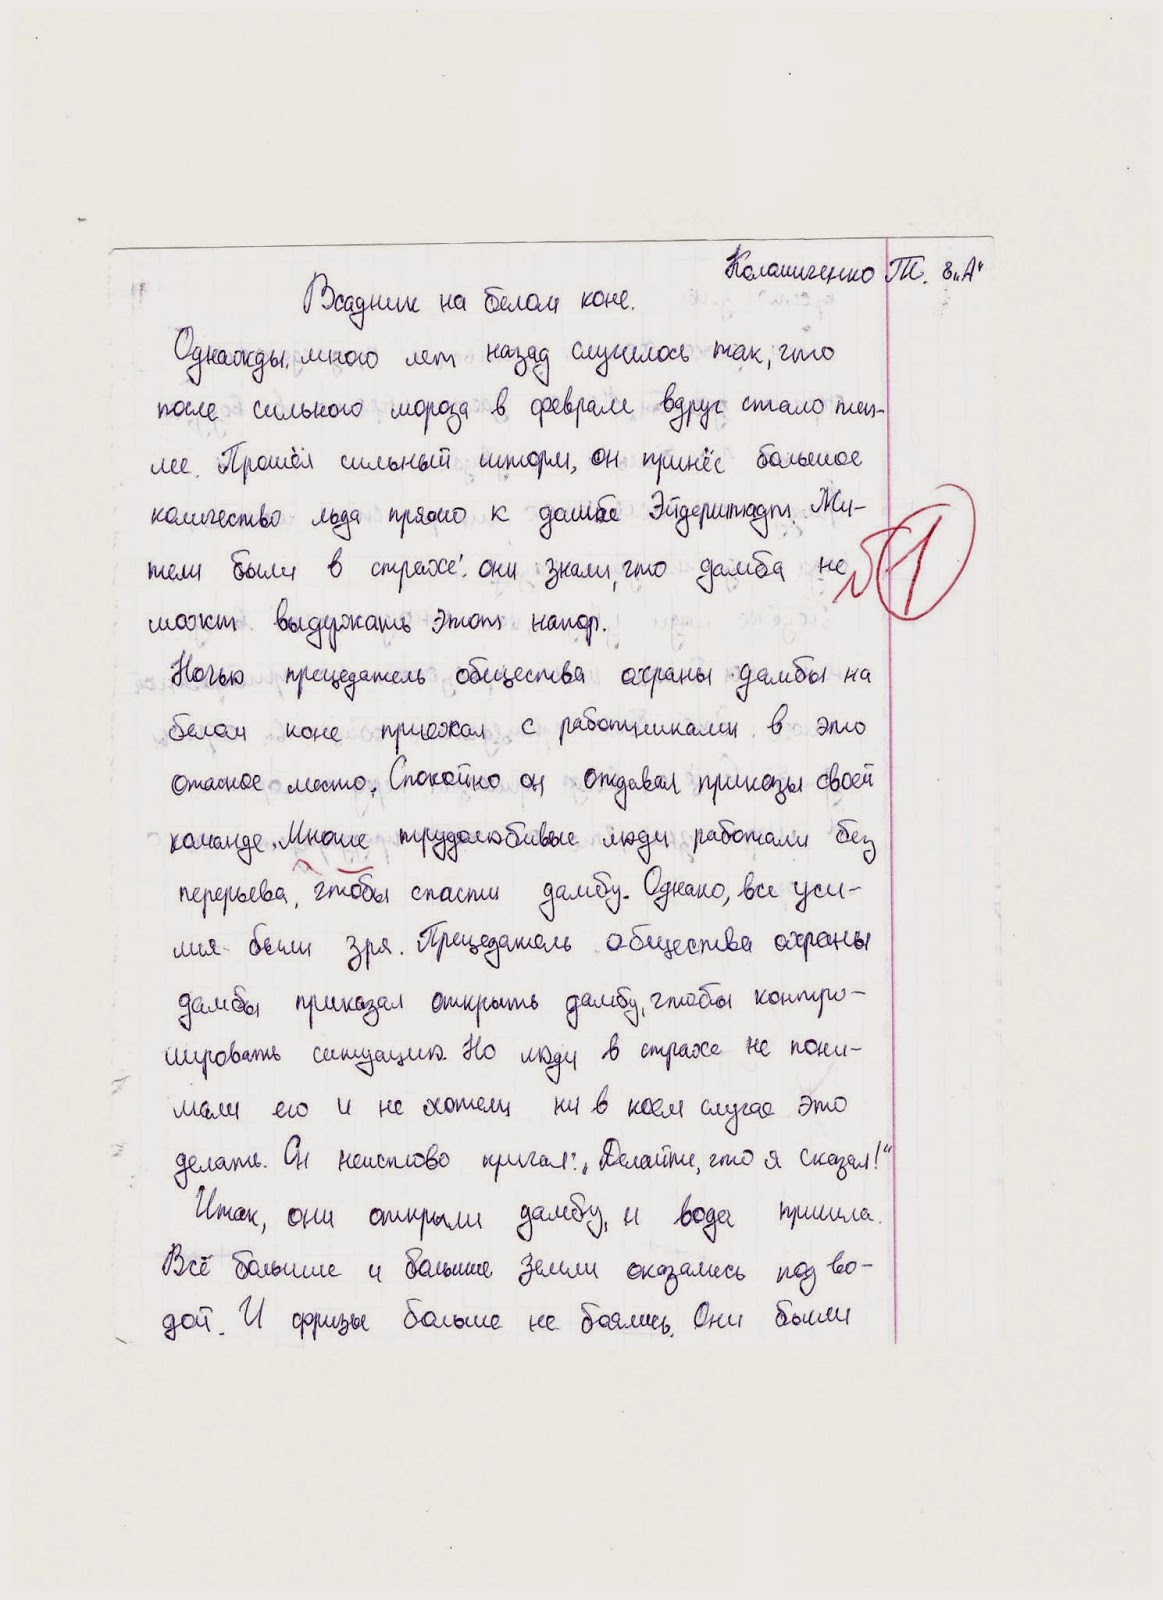 Колашиченко Т. 8„А“
Всадник на белом коне.
Однажды, много лет назад случилось так, что
после сильного мороза в феврале вдруг стало теп-
лее. Прошёл сильный шторм, он принёс большое
количество льда прямо к дамбе Эйдерштадт. Жи-
тели были в страхе: они знали, что дамба не
может выдержать этот напор.
1
Ночью прецедатель общества охраны дамбы на
белом коне приехал с работниками в это
опасное место. Спокойно он отдавал приказы своей
команде. Многие трудолюбивые люди работали без
перерыва, чтобы спасти дамбу. Однако, все уси-
лия были зря. Прецедатель общества охраны
дамбы приказал открыть дамбу, чтобы контро-
лировать ситуацию. Но люди в страхе не пони-
мали его и не хотели ни в коем случае это
делать. Он неистово кричал: „Делайте, что я сказал!“
Итак, они открыли дамбу, и вода пришла.
Всё больше и больше земли оказались под во-
дой. И фризы больше не боялись. Они были